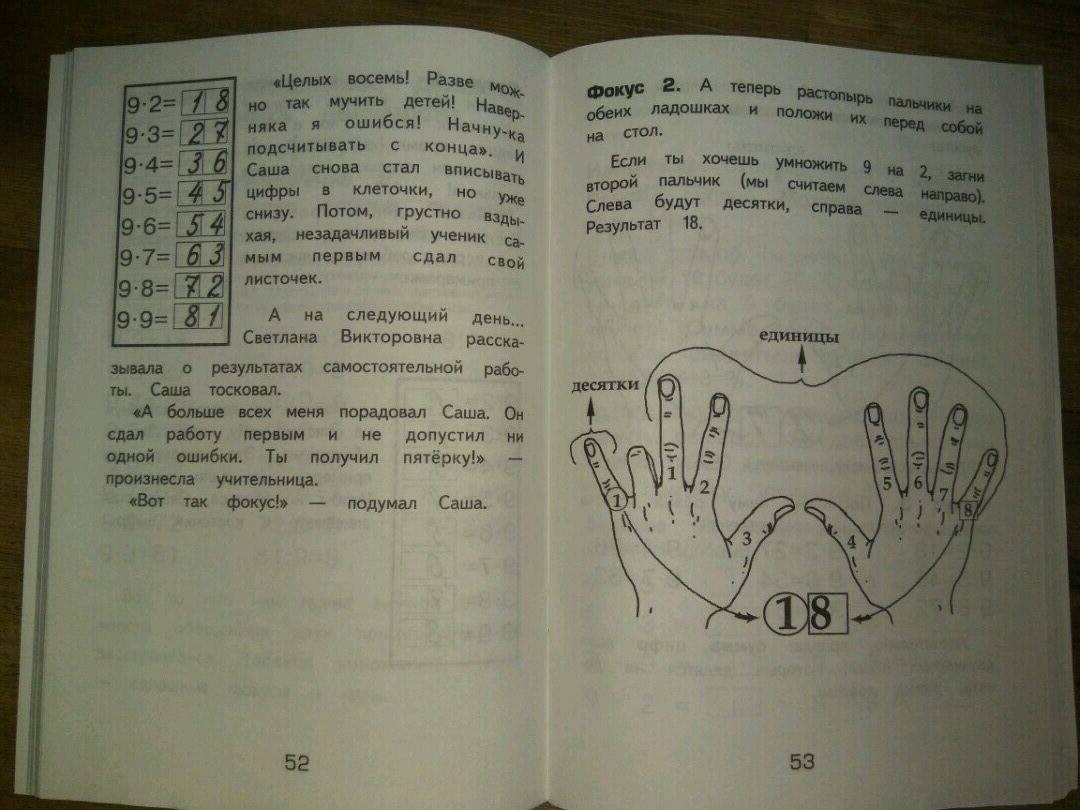 9·2= 18
9·3= 27
9·4= 36
9·5= 45
9·6= 54
9·7= 63
9·8= 72
9·9= 81
«Целых восемь! Разве мож-
но так мучить детей! Навер-
няка я ошибся! Начну-ка
подсчитывать с конца». И
Саша снова стал вписывать
цифры в клеточки, но уже
снизу. Потом, грустно взды-
хая, незадачливый ученик са-
мым первым сдал свой
листочек.
А на следующий день...
Светлана Викторовна расска-
зывала о результатах самостоятельной рабо-
ты. Саша тосковал.
«А больше всех меня порадовал Саша. Он
сдал работу первым и не допустил ни
одной ошибки. Ты получил пятёрку!» —
произнесла учительница.
«Вот так фокус!» — подумал Саша.
52
Фокус 2. А теперь растопырь пальчики на
обеих ладошках и положи их перед собой
на стол.
Если ты хочешь умножить 9 на 2, загни
второй пальчик (мы считаем слева направо).
Слева будут десятки, справа — единицы.
Результат 18.
единицы
десятки
1
1
2
3
4
5
6
7
8
18
53